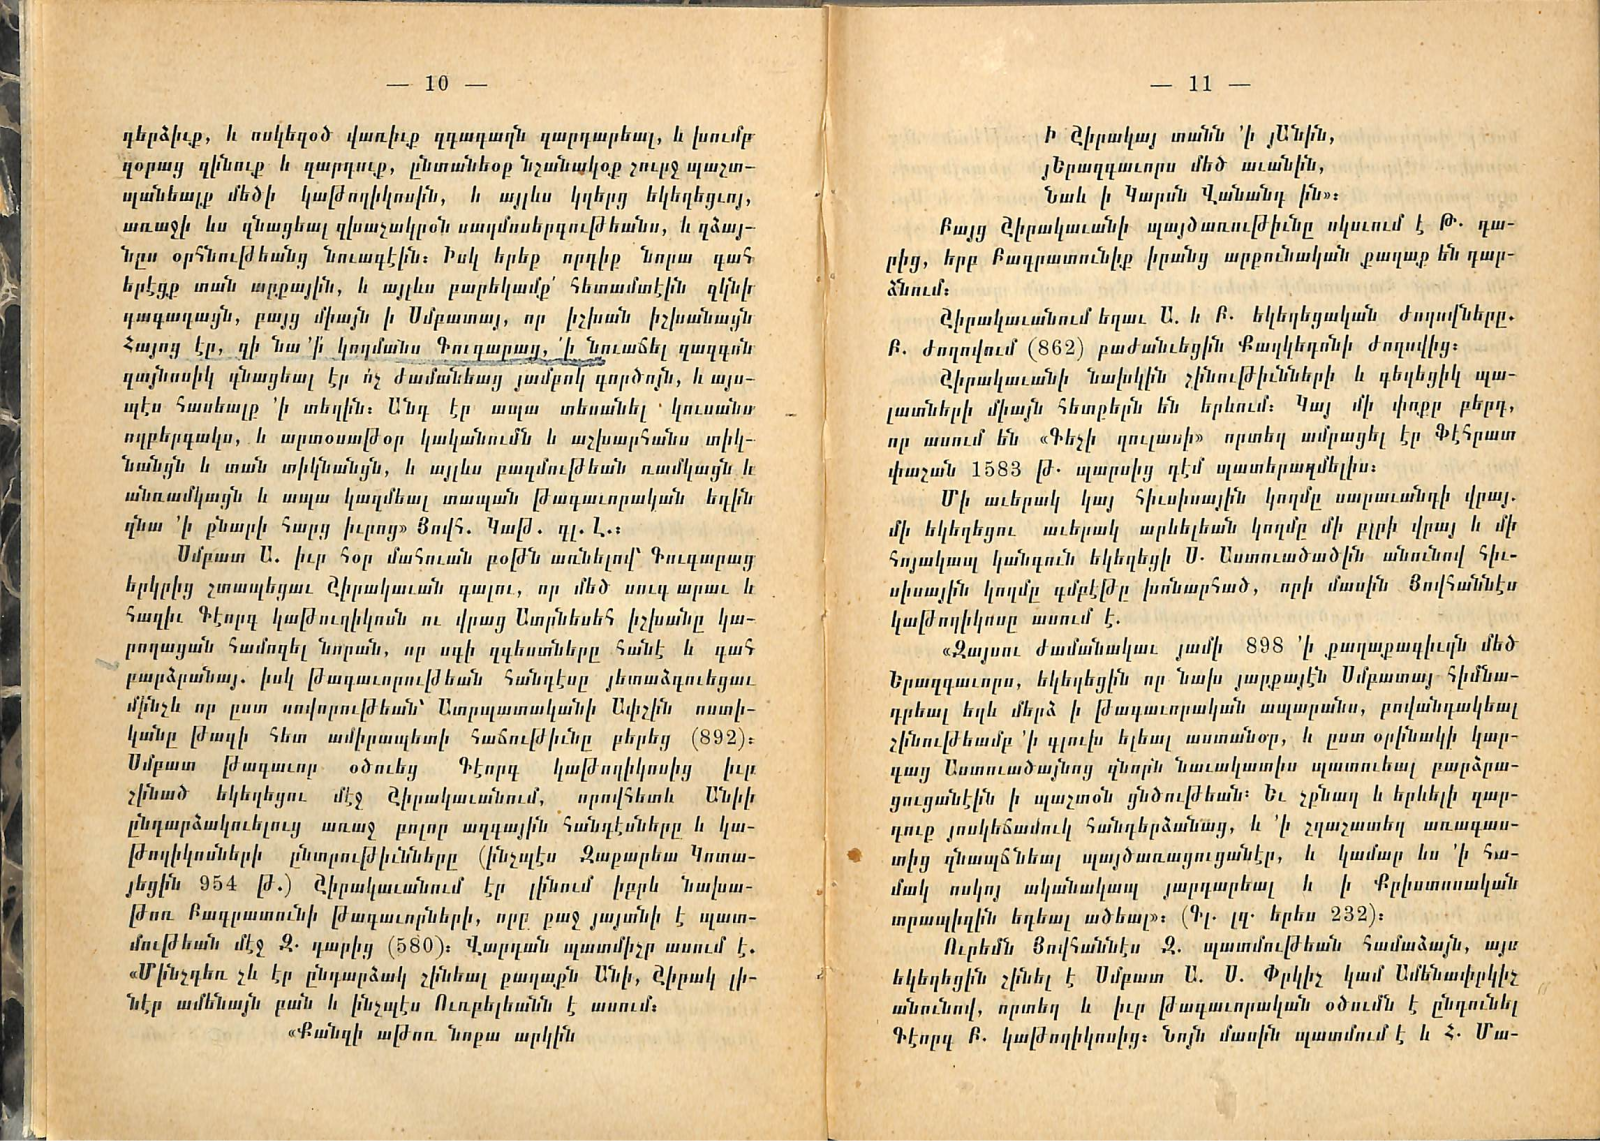 — 10 —
դերձիւք, և ոսկեզօծ վառիւք զդագաղն զարդարեալ, և խումբ
զօրաց զինուք և զարդուք, ընտանեօք նշանակօք շուրջ պաշտ-
պանեալք մեծի կաթողիկոսին, և այլևս կղերց եկեղեցւոյ,
առաջի ևս գնացեալ զխաչակրօն սաղմոսերգութեանս, և զձայ-
նըս օրհնութեանց նուագէին։ Իսկ երեք որդիք նորա գահ
երէցք տան արքային, և այլևս բարեկամք՝ հետամտէին զկնի
դագաղացն, բայց միայն ի Սմբատայ, որ իշխան իշխանացն
Հայոց էր, զի նա ՚ի կողմանս Գուգարաց, ՚ի նուաճել զազգսն
զայնոսիկ գնացեալ էր ոչ ժամանեաց յամբոկ գործոյն, և այս-
պէս հասեալք ՚ի տեղին։ Անդ էր ապա տեսանել կուսանս
ողբերգակս, և արտօսաթօր կականումն և աշխարհանս տիկ-
նանցն և տան տիկնանցն, և այլևս բազմութեան ռամկացն և
անռամկացն և ապա կազմեալ տապան թագաւորական եդին
զնա ՚ի քնարի հարց իւրոց» Յովհ. Կաթ. գլ. Լ.։
Սմբատ Ա. իւր հօր մահուան բօթն առնելով՝ Գուգարաց
երկրից շտապեցաւ Շիրակաւան գալու, որ մեծ սուգ արաւ և
հազիւ Գէորգ կաթուղիկոսն ու վրաց Ատրներսեհ իշխանը կա-
րողացան համոզել նորան, որ սգի զգեստները հանէ և գահ
բարձրանայ. իսկ թագաւորութեան հանդէսը յետաձգուեցաւ
մինչև որ ըստ սովորութեան՝ Ատրպատականի Ափշին ոստի-
կանը թագի հետ ամիրապետի հաճութիւնը բերեց (892)։
Սմբատ թագաւոր օծուեց Գէորգ կաթողիկոսից իւր
շինած եկեղեցու մէջ Շիրակաւանում, որովհետև Անիի
ընդարձակուելուց առաջ բոլոր ազգային հանդէսները և կա-
թողիկոսների ընտրութիւնները (ինչպէս Զաքարեա Կոտա-
յեցին 954 թ.) Շիրակաւանում էր լինում իբրև նախա-
թոռ Բագրատունի թագաւորների, որը քաջ յայտնի է պատ-
մութեան մէջ Զ. դարից (580)։ Վարդան պատմիչր ասում է.
«Մինչդեռ չև էր ընդարձակ շինեալ քաղաքն Անի, Շիրակ լի-
նէր ամենայն բան և ինչպէս Ուռբելեանն է ասում։
«Քանզի աթոռ նոքա արկին
— 11 —
Ի Շիրակայ տանն ՚ի յԱնին,
յԵրազգաւորս մեծ աւանին,
Նաև ի Կարսն Վանանդ ին»։
Բայց Շիրակաւանի պայծառութիւնը սկսւում է Թ. դա-
րից, երբ Բագրատունիք իրանց արքունական քաղաք են դար-
ձնում։
Շիրակաւանում եղաւ Ա. և Բ. եկեղեցական ժողովները.
Բ. ժողովում (862) բաժանւեցին Քաղկեդոնի ժողովից։
Շիրակաւանի նախկին շինութիւնների և գեղեցիկ պա-
լատների միայն հետքերն են երևում։ Կայ մի փոքր բերդ,
որ ասում են «Գեչի ղուլասի» որտեղ ամրացել էր Ֆէհրատ
փաշան 1583 թ. պարսից դէմ պատերազմելիս։
Մի աւերակ կայ հիւսիսային կողմը սարաւանդի վրայ.
մի եկեղեցու աւերակ արևելեան կողմը մի բլրի վրայ և մի
հոյակապ կանգուն եկեղեցի Ս. Աստուածածին անունով հիւ-
սիսային կողմը գմբէթը խոնարհած, որի մասին Յովհաննէս
կաթողիկոսը ասում է.
«Զայսու ժամանակաւ յամի 898 ՚ի քաղաքագիւղն մեծ
Երազգաւորս, եկեղեցին որ նախ յարքայէն Սմբատայ հիմնա-
դրեալ եղև մերձ ի թագաւորական ապարանս, բովանդակեալ
շինութեամբ ՚ի գլուխ ելեալ աստանօր, և ըստ օրինակի կար-
գաց Աստուածայնոց զնորն նաւակատիս պատուեալ բարձրա-
ցուցանէին ի պաշտօն ցնծութեան։ Եւ չքնաղ և երևելի զար-
դուք յոսկեճամուկ հանդերձանաց, և ՚ի շղաշատեղ առագաս-
տից զնապճնեալ պայծառացուցանէր, և կամար ևս ՚ի հա-
մակ ոսկոյ ականակապ յարդարեալ և ի Քրիստոսական
տրապիզին եդեալ ածեալ»։ (Գլ. լզ. երես 232)։
Ուրեմն Յովհաննէս Զ. պատմութեան համաձայն, այս
եկեղեցին շինել է Սմբատ Ա. Ս. Փրկիչ կամ Ամենափրկիչ
անունով, որտեղ և իւր թագաւորական օծումն է ընդունել
Գէորգ Բ. կաթողիկոսից։ Նոյն մասին պատմում է և Հ. Մա-